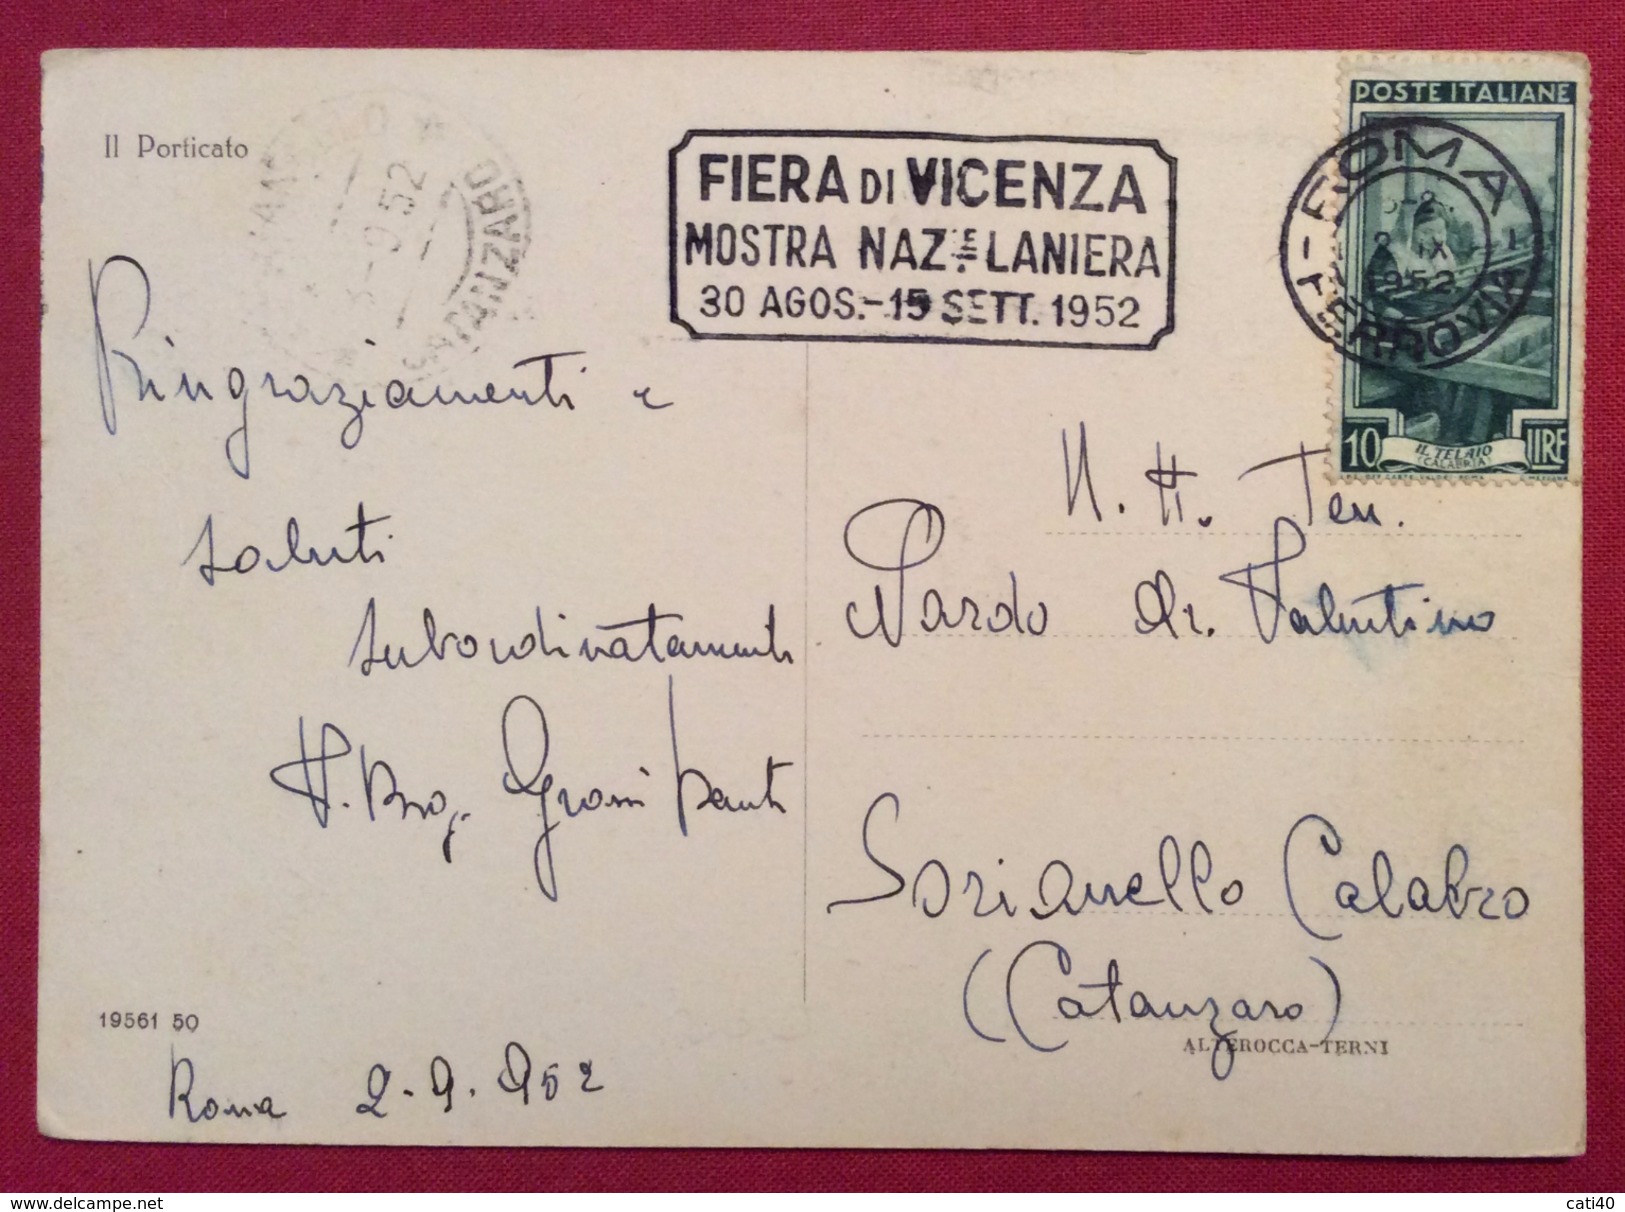 Il Porticato
9.52
CATANZARO
FIERA DI VICENZA
MOSTRA NAZ.LE LANIERA
30 AGOS.-15 SETT. 1952
POSTE ITALIANE
ROMA
FERROVIA
2 IX
1952
10 LIRE
IL TELAIO
(CALABRIA)
Ringraziamenti e
saluti
subordinatamente
N. H. Ten.
Pardo Dr. Valentino
Sorianello Calabro
(Catanzaro)
19561 50
ALTEROCCA-TERNI
Roma 2-9.952
cati40